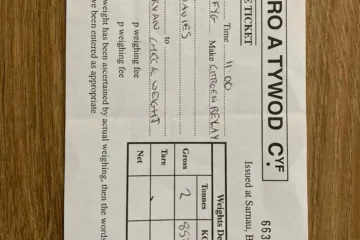 RO A TYWOD CYF.
E TICKET
Issued at Sarnau, B
663
Time 11:00
FYG Make CITROEN RELAY
to
VAN CHECK WEIGHT
p weighing fee
p weighing fee
Weights De
Tonnes KG
Gross 2 85
Tare
Net
weight has been ascertained by actual weighing, then the words
ve been entered as appropriate